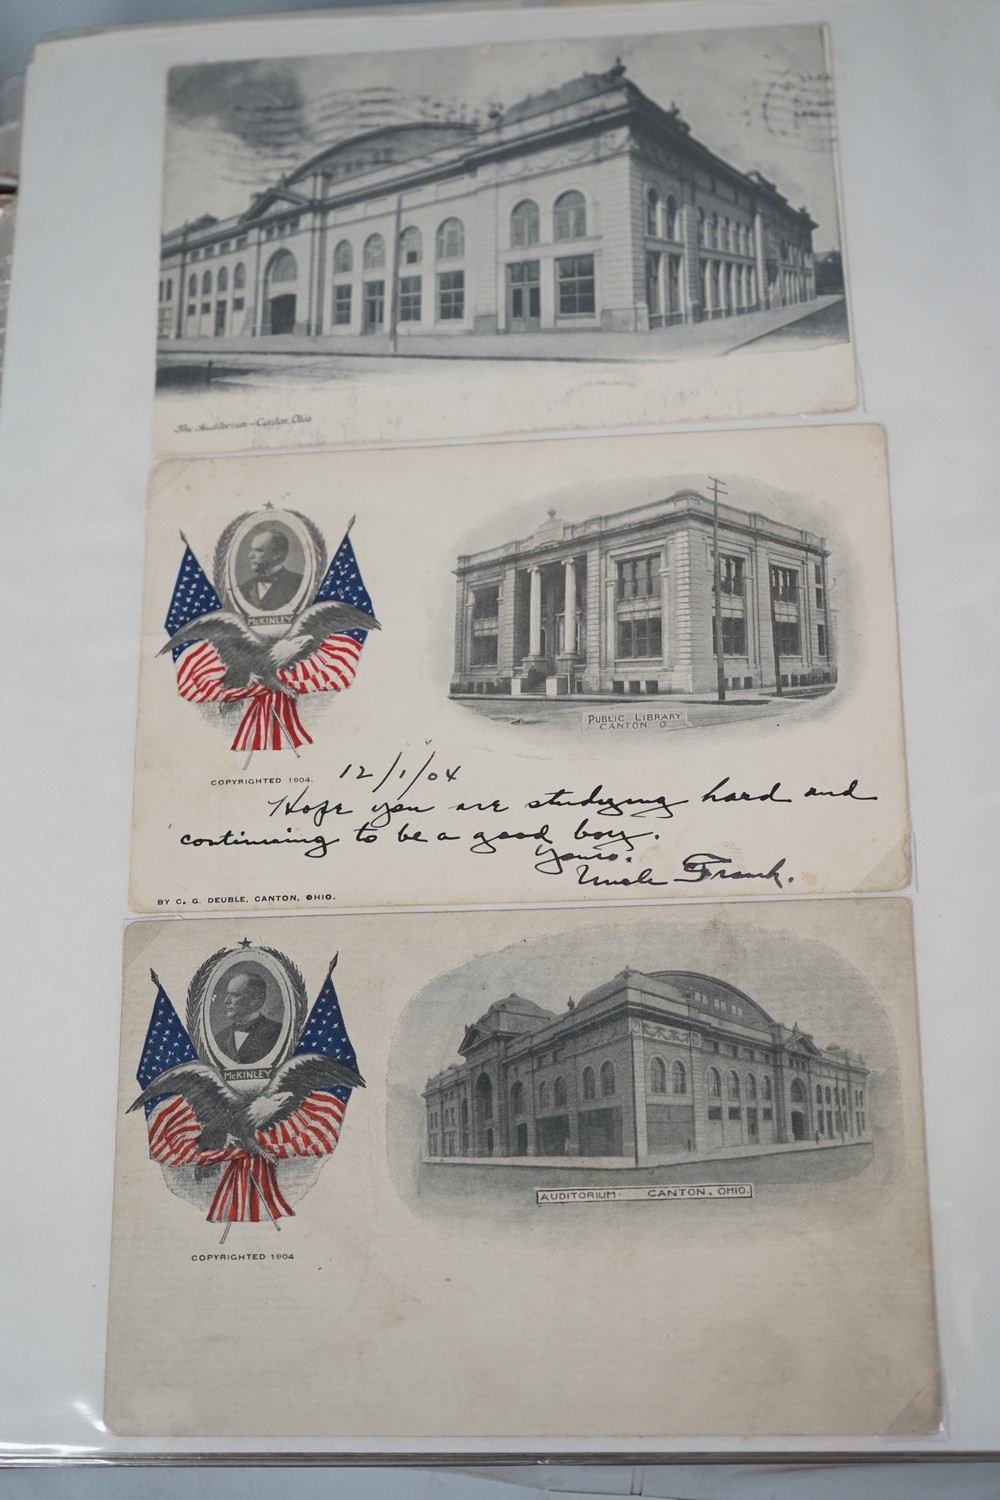 The Auditorium—Canton, Ohio.
McKINLEY
COPYRIGHTED 1904.
PUBLIC LIBRARY
CANTON, O.
12/1/04
Hope you are studying hard and
continuing to be a good boy.
Yours.
Uncle Frank.
BY C. G. DEUBLE, CANTON, OHIO.
McKINLEY
COPYRIGHTED 1904
AUDITORIUM· CANTON, OHIO.